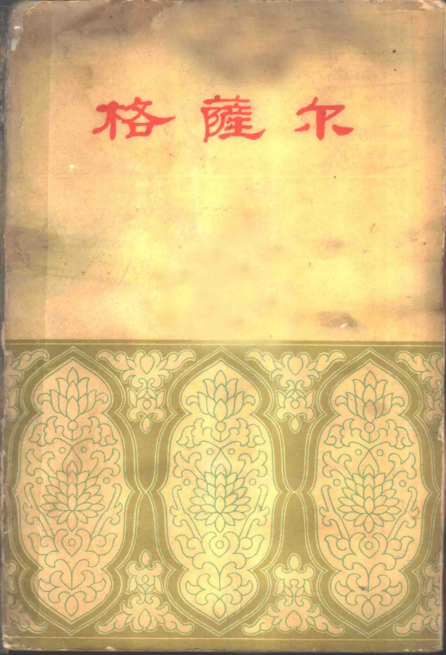 格薩尔